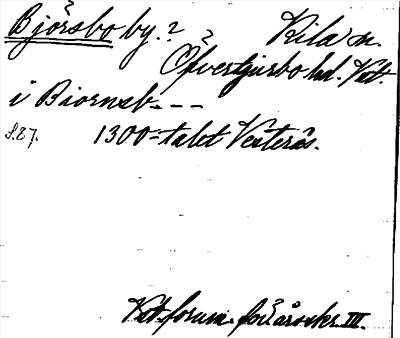 Björsbo by. ? Kila sn.
Öfvertjurbo hd. Vat.
i Biornsb - - -
S. 87. 1300-talet Vesterås.
Vat. forum. för. årsskr. III.